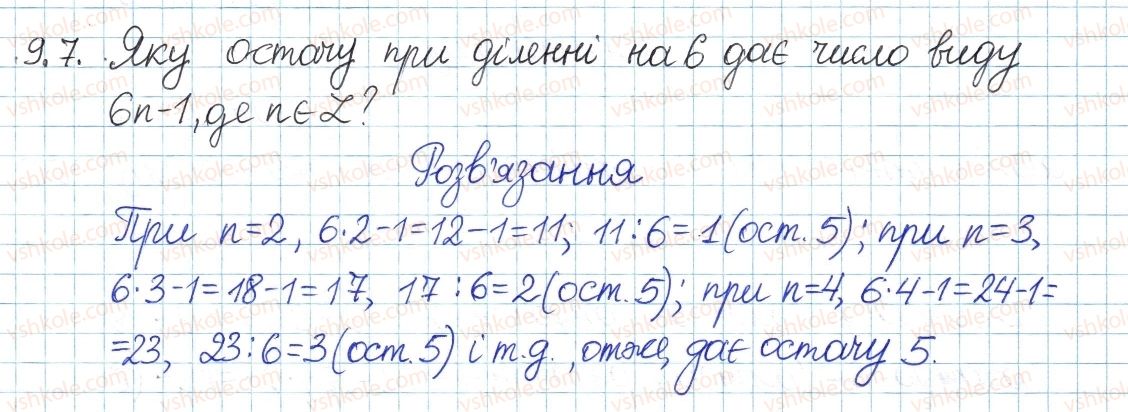 9.7. Яку остачу при діленні на 6 дає число виду
6n-1, де n∈Z?
Розв'язання
При n=2, 6·2-1=12-1=11; 11:6=1(ост.5); при n=3,
6·3-1=18-1=17, 17:6=2(ост.5); при n=4, 6·4-1=24-1=
=23, 23:6=3(ост.5) і т.д., отже, дає остачу 5.